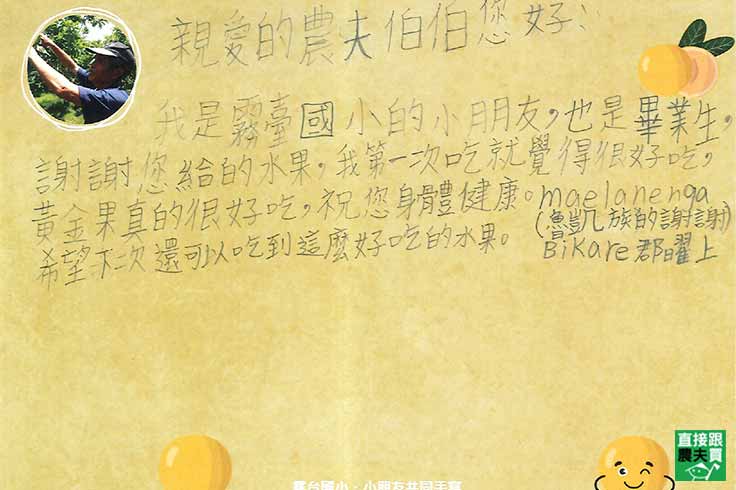 親愛的農夫伯伯您好：
我是霧臺國小的小朋友，也是畢業生，
謝謝您給的水果，我第一次吃就覺得很好吃，
黃金果真的很好吃，祝您身體健康。maelanenga
(魯凱族的謝謝)
希望下次還可以吃到這麼好吃的水果。 Bikare郡曜上
直接跟
農夫買
霧台國小．小朋友共同手寫